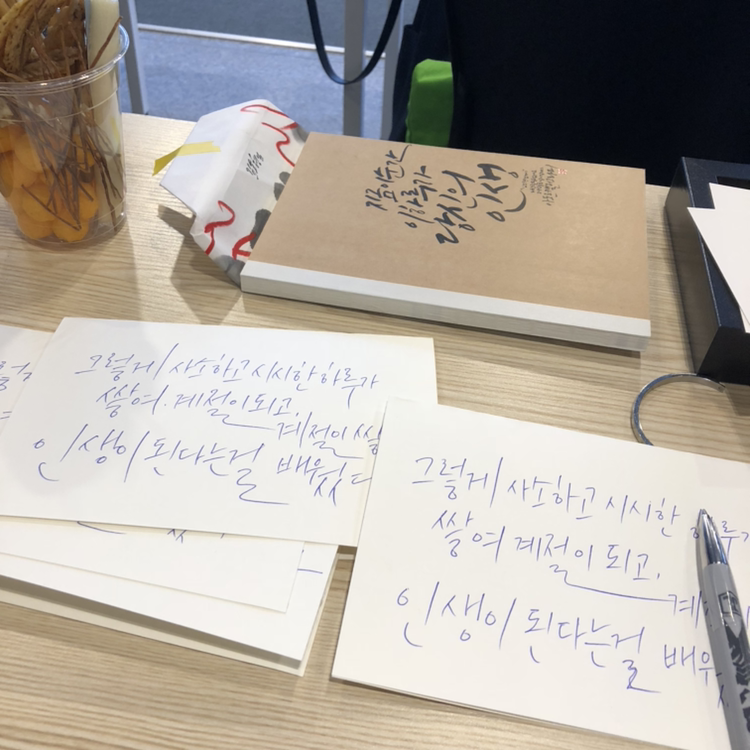 지금이순간
이하루가
당신의
인생
그렇게 사소하고 시시한 하루가
쌓여. 계절이 되고,
계절이 쌓
인생이 된다는걸 배웠다
그렇게 사소하고 시시한 하루가
쌓여 계절이 되고,
계
인생이 된다는걸 배웠